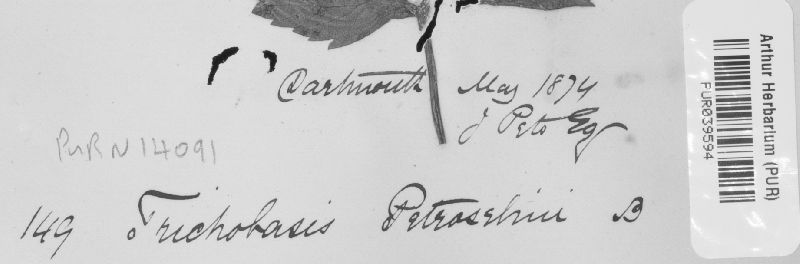 Dartmouth May 1874
J Peto Esq
PUR N 14091
149 Trichobasis Petroselini B
Arthur Herbarium (PUR)
PUR039594